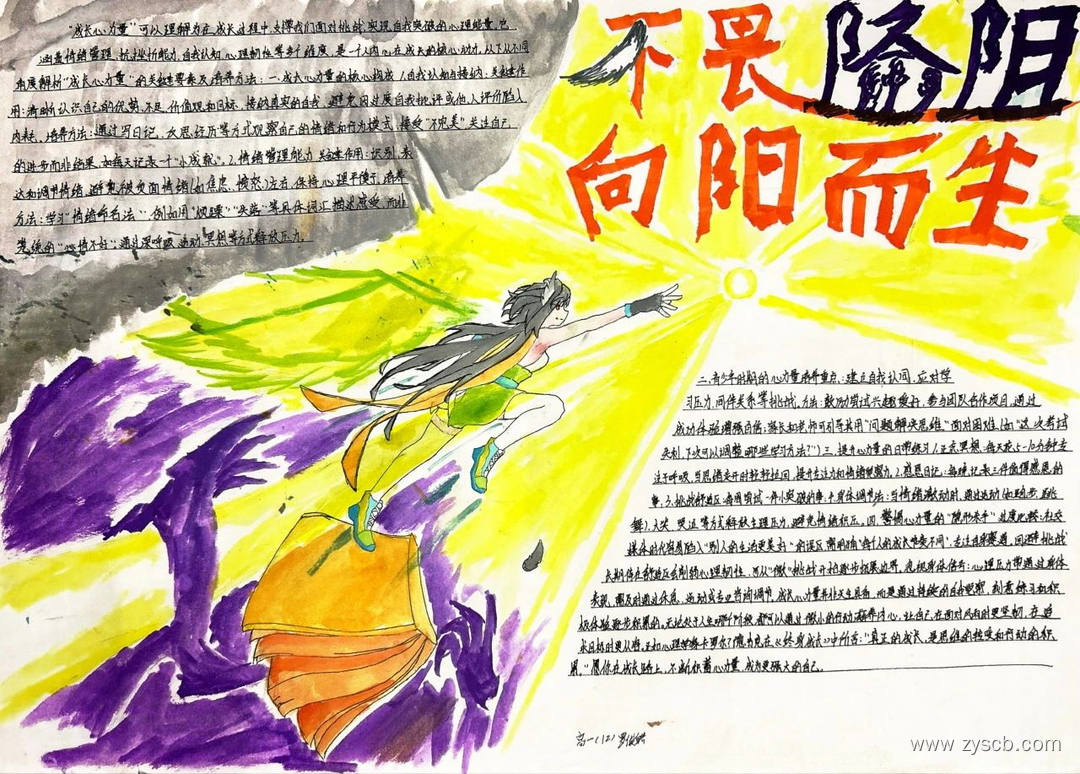 不畏降阴
向阳而生
"成长心力量"可以理解为在成长过程中支撑我们面对挑战、实现自我突破的心理能量,它
涵盖情绪管理、抗挫折能力、自我认知、心理韧性等多个维度,是一个人内心在成长的核心动力,以下从不同
角度解析"成长心力量"的关键要素及培养方法:一、成长心力量的核心构成 1.自我认知与接纳:关键作
用:清晰认识自己的优势、不足、价值观和目标,接纳真实的自我,避免因过度自我批评或他人评价陷入
内耗。培养方法:通过写日记、反思经历等方式观察自己的情绪和行为模式,接受"不完美",关注自己
的进步而非结果,如每天记录一个"小成就"。2.情绪管理能力 关键作用:识别、表
达和调节情绪,避免被负面情绪(如焦虑、愤怒)左右,保持心理平衡。培养
方法:学习"情绪命名法",例如用"烦躁"、"失落"等具体词汇描述感受,而非
笼统的"心情不好";通过深呼吸、运动、冥想等方式释放压力。
二、青少年时期的心力量培养重点:建立自我认同、应对学
习压力、同伴关系等挑战。方法:鼓励尝试兴趣爱好,参与团队合作项目,通过
成功体验增强自信;家长和老师可引导其用"问题解决思维"面对困难(如"这次考试
失利,下次可以调整哪些学习方法?")三、提升心力量的日常练习 1.正念冥想:每天花5-10分钟专
注于呼吸,当思绪关开时轻轻拉回,提升专注力和情绪觉察力。2.感恩日记:每晚记录三件值得感恩的
事。3.挑战舒适区:每周尝试一件小突破的事。4.身体调节法:当情绪激动时,通过运动(如跑步、跳
舞)、大笑、哭泣等方式释放生理压力,避免情绪积压。四、警惕心力量的"隐形杀手" 过度比较:社交
媒体时代容易陷入"别人的生活更美好"的误区,需明确"每个人的成长节奏不同",专注自身赛道。回避挑战:
长期待在舒适区会削弱心理韧性,可从"微"挑战开始逐步拓展边界。忽视身体信号:心理压力常通过身体
表现,需及时通过休息、运动或专业咨询调节。成长心力量并非天生具备,而是通过持续的自我觉察、刻意练习和积
极体验逐步积累的。无论处于人生哪个阶段,都可以通过微小的行动滋养内心,让自己在面对风雨时更坚韧,在追
求目标时更从容。正如心理学家卡罗尔·德韦克在《终身成长》中所言:"真正的成长,是思维的转变和行动的积
累。"愿你在成长路上,不断积蓄心力量,成为更强大的自己。
高一(12)
www.zyscb.com